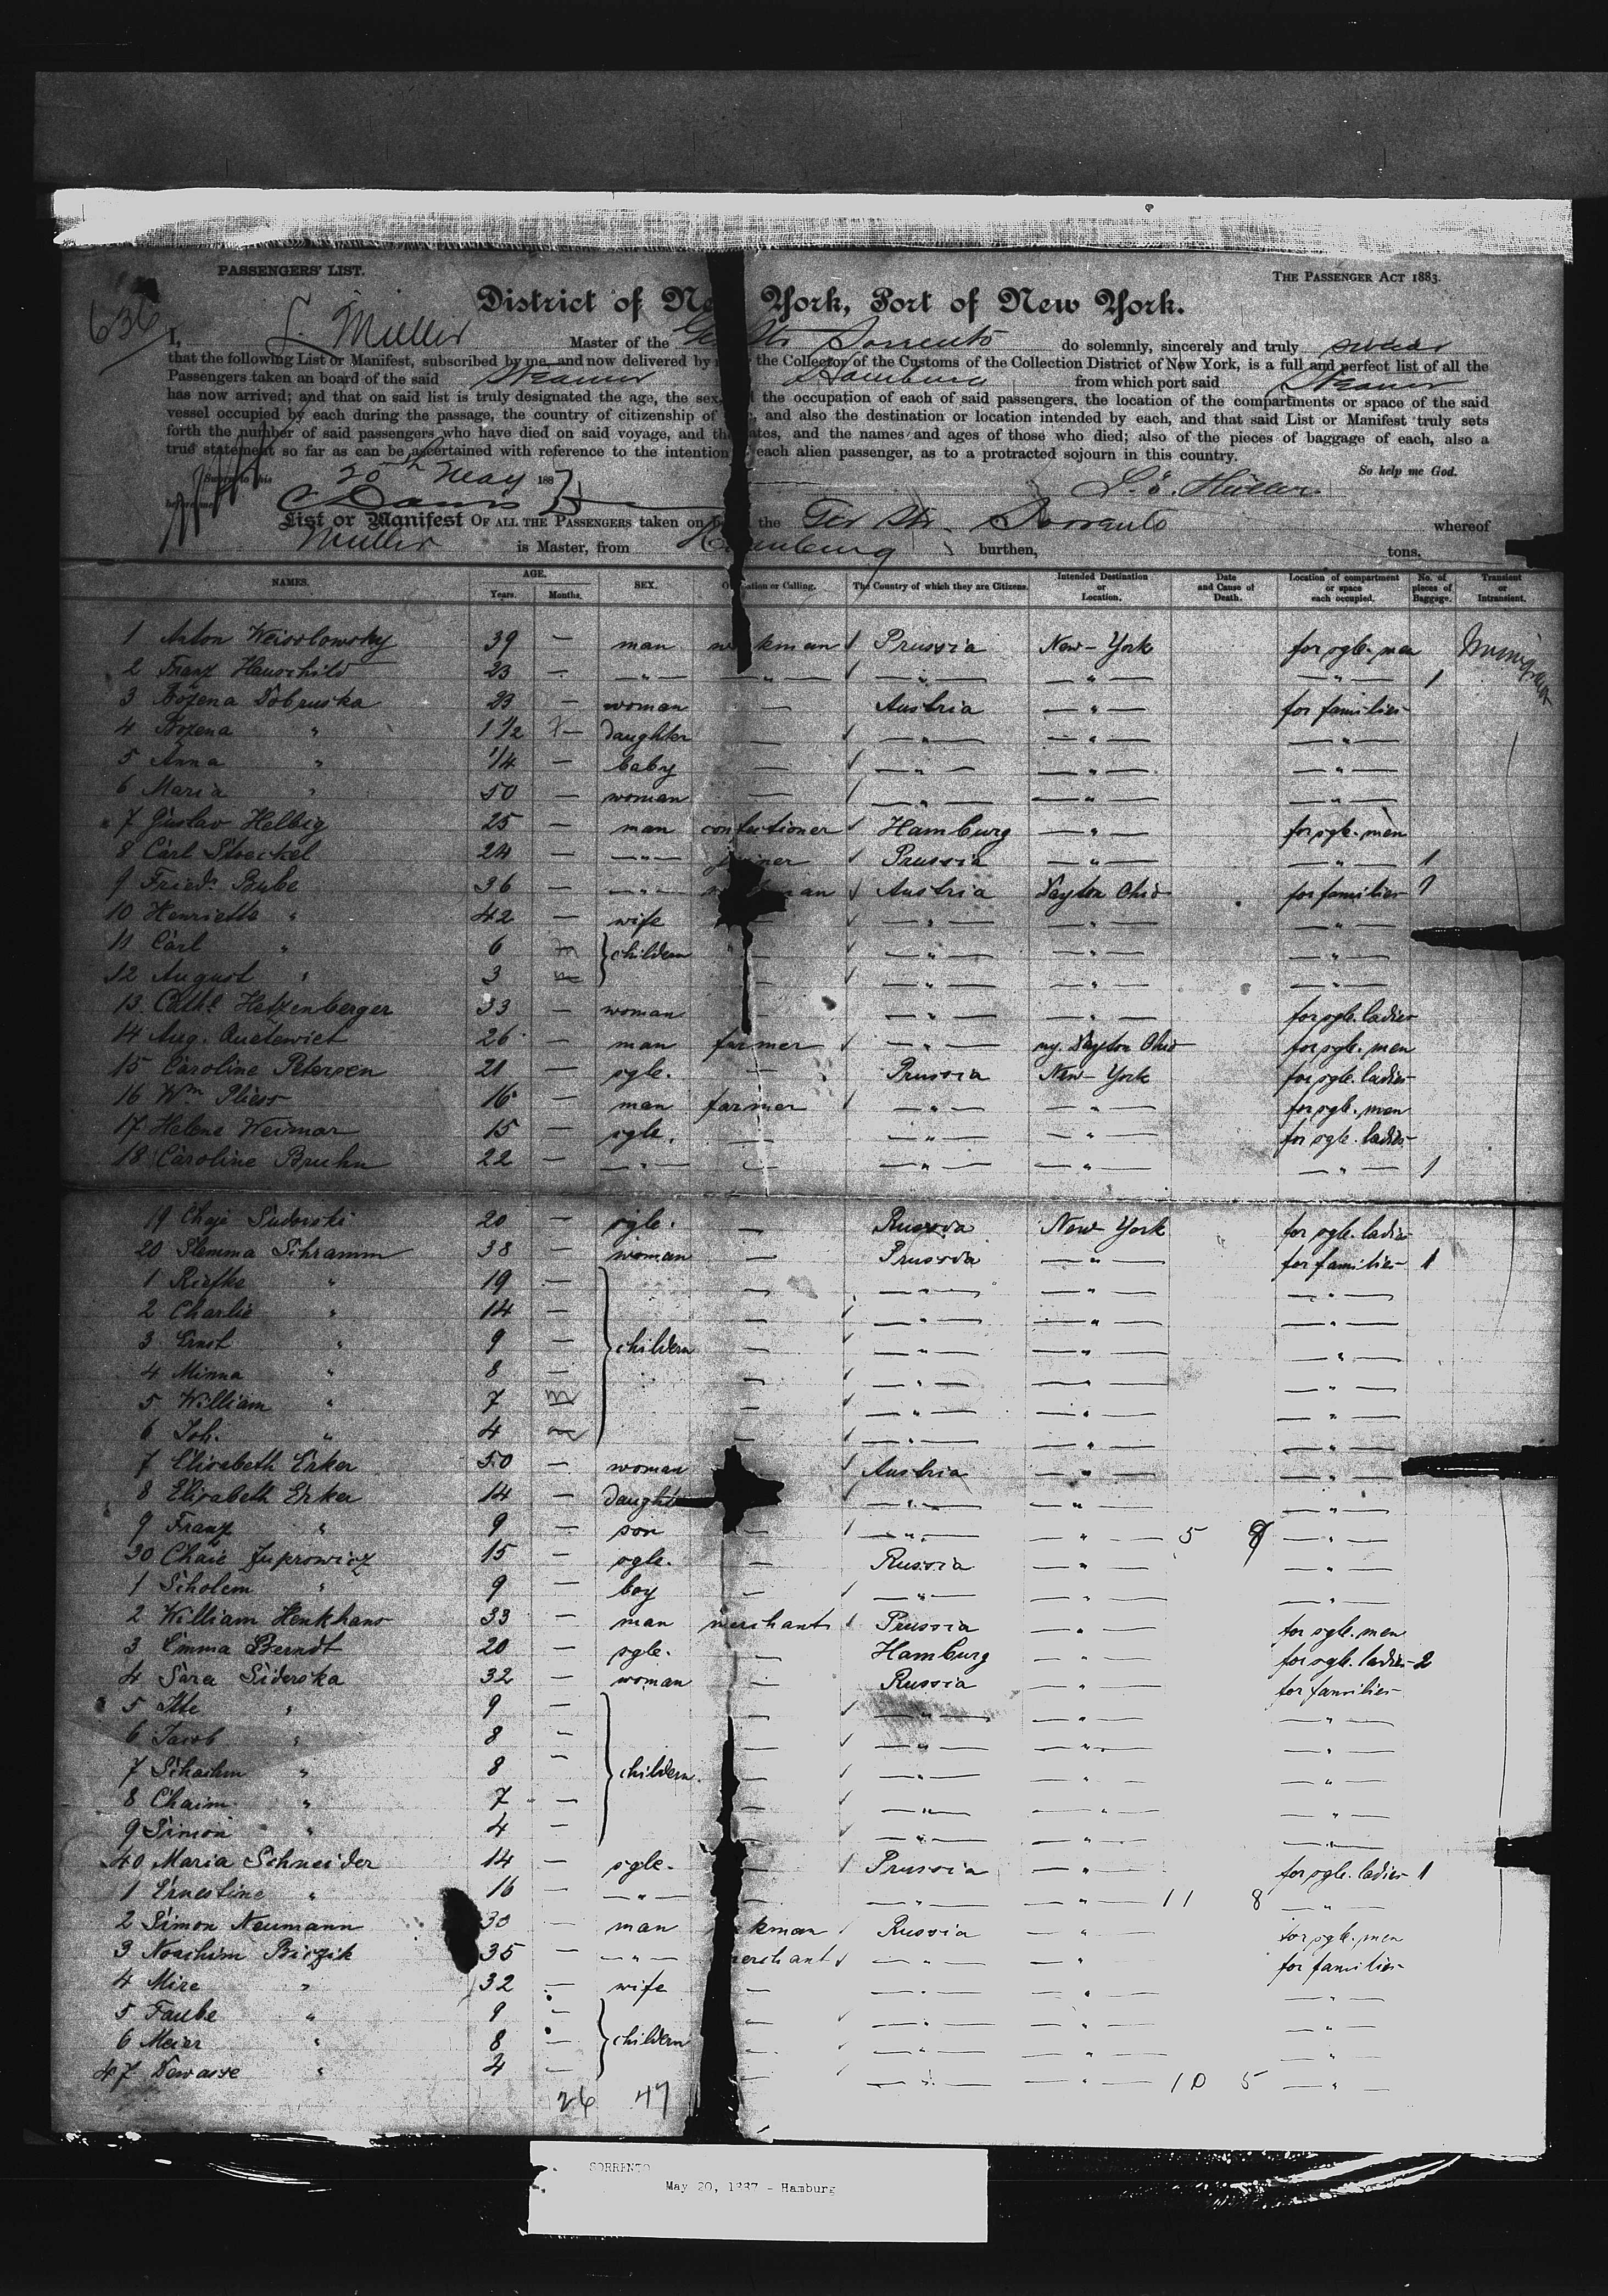 PASSENGERS' LIST.
THE PASSENGER ACT 1883.
636
District of Ne York, Port of New York.
I, L. Muller Master of the Ger Str Sorrento do solemnly, sincerely and truly swear
that the following List or Manifest, subscribed by me, and now delivered by the Collector of the Customs of the Collection District of New York, is a full and perfect list of all the
Passengers taken an board of the said Steamer Hamburg from which port said Steamer
has now arrived; and that on said list is truly designated the age, the sex the occupation of each of said passengers, the location of the compartments or space of the said
vessel occupied by each during the passage, the country of citizenship of , and also the destination or location intended by each, and that said List or Manifest truly sets
forth the number of said passengers who have died on said voyage, and the ates, and the names and ages of those who died; also of the pieces of baggage of each, also a
true statement so far as can be ascertained with reference to the intention each alien passenger, as to a protracted sojourn in this country.
So help me God.
Sworn to this 20th May 188
before me
List or Manifest OF ALL THE PASSENGERS taken on the Ger Str. Sorrento whereof
Muller is Master, from Hamburg burthen, tons.
NAMES. AGE. Years. Months. SEX. ation or Calling. The Country of which they are Citizens. Intended Destination or Location. Date and Cause of Death. Location of compartment or space each occupied. No. of pieces of Baggage. Transient or Intransient.
1 Anton Weisslowsky 39 — man workman Prussia New-York for sgle. men
2 Franz Hauschild 23 — —"— —"— —"— —"— —"— 1
3 Bozena Dobruska 23 — woman — Austria —"— for families
4 Bozena " 1 1/2 — daughter — —"— —"— —"—
5 Anna " 1/4 — baby — —"— —"— —"—
6 Maria " 50 — woman — —"— —"— —"—
7 Gustav Helbig 25 — man confectioner Hamburg —"— for sgle. men
8 Carl Stoeckel 24 — —"— Prussia —"— —"— 1
9 Friedr. Bube 36 — —"— an Austria Dayton Ohio for families
10 Henriette " 42 — wife —"— —"— —"—
11 Carl " 6 m children — —"— —"— —"—
12 August " 3 m — —"— —"— —"—
13 Cathe. Hetzenberger 33 — woman — —"— —"— for sgle. ladies
14 Aug. 26 — man farmer —"— Dayton Ohio for sgle. men
15 Caroline Petersen 21 — sgle. — Prussia New-York for sgle. ladies
16 Wm Pliess 16 — man farmer —"— —"— for sgle. men
17 Helene Weimar 15 — sgle. — —"— —"— for sgle. ladies
18 Caroline Bruhn 22 — —"— — —"— —"— —"— 1
19 Chaje Sudorski 20 — sgle. — Russia New-York for sgle. ladies
20 Schramm 38 — woman — Prussia —"— for families 1
1 Riefke " 19 — — —"— —"— —"—
2 Charlie " 14 — — —"— —"— —"—
3 Ernst " 9 — children — —"— —"— —"—
4 Minna " 8 — — —"— —"— —"—
5 William " 7 m — —"— —"— —"—
6 Joh. " 4 m — —"— —"— —"—
7 Elisabeth Erker 50 — woman Austria —"— —"—
8 Elisabeth Erker 14 — daughte —"— —"— —"—
9 Franz " 9 — son — —"— —"— 5 8 —"—
30 Chaie Juprowicz 15 — sgle. — Russia —"— —"—
1 Scholem " 9 — boy — —"— —"— —"—
2 William Henkhans 33 — man merchant Prussia —"— for sgle. men
3 Emma Berndt 20 — sgle. — Hamburg —"— for sgle. ladies 2
4 Sara Siderska 32 — woman — Russia —"— for families
5 " 9 — — —"— —"— —"—
6 Jacob " 8 — — —"— —"— —"—
7 Schachm " 8 — children — —"— —"— —"—
8 Chaim " 7 — — —"— —"— —"—
9 Simon " 4 — — —"— —"— —"—
40 Maria Schneider 14 — sgle. — Prussia —"— for sgle. ladies 1
1 Ernestine " 16 — —"— — —"— —"— 11 8 —"—
2 Simon Neumann 30 — man kman Russia —"— for sgle. men
3 Noachim Biczik 35 — —"— merchant —"— —"— for families
4 Mire " 32 — wife — —"— —"— —"—
5 Taube " 9 — — —"— —"— —"—
6 Meier " 8 — children — —"— —"— —"—
47 Dewasse " 4 — — —"— —"— 10 5 —"—
26 47
SORRENTO
May 20, 1887 - Hamburg